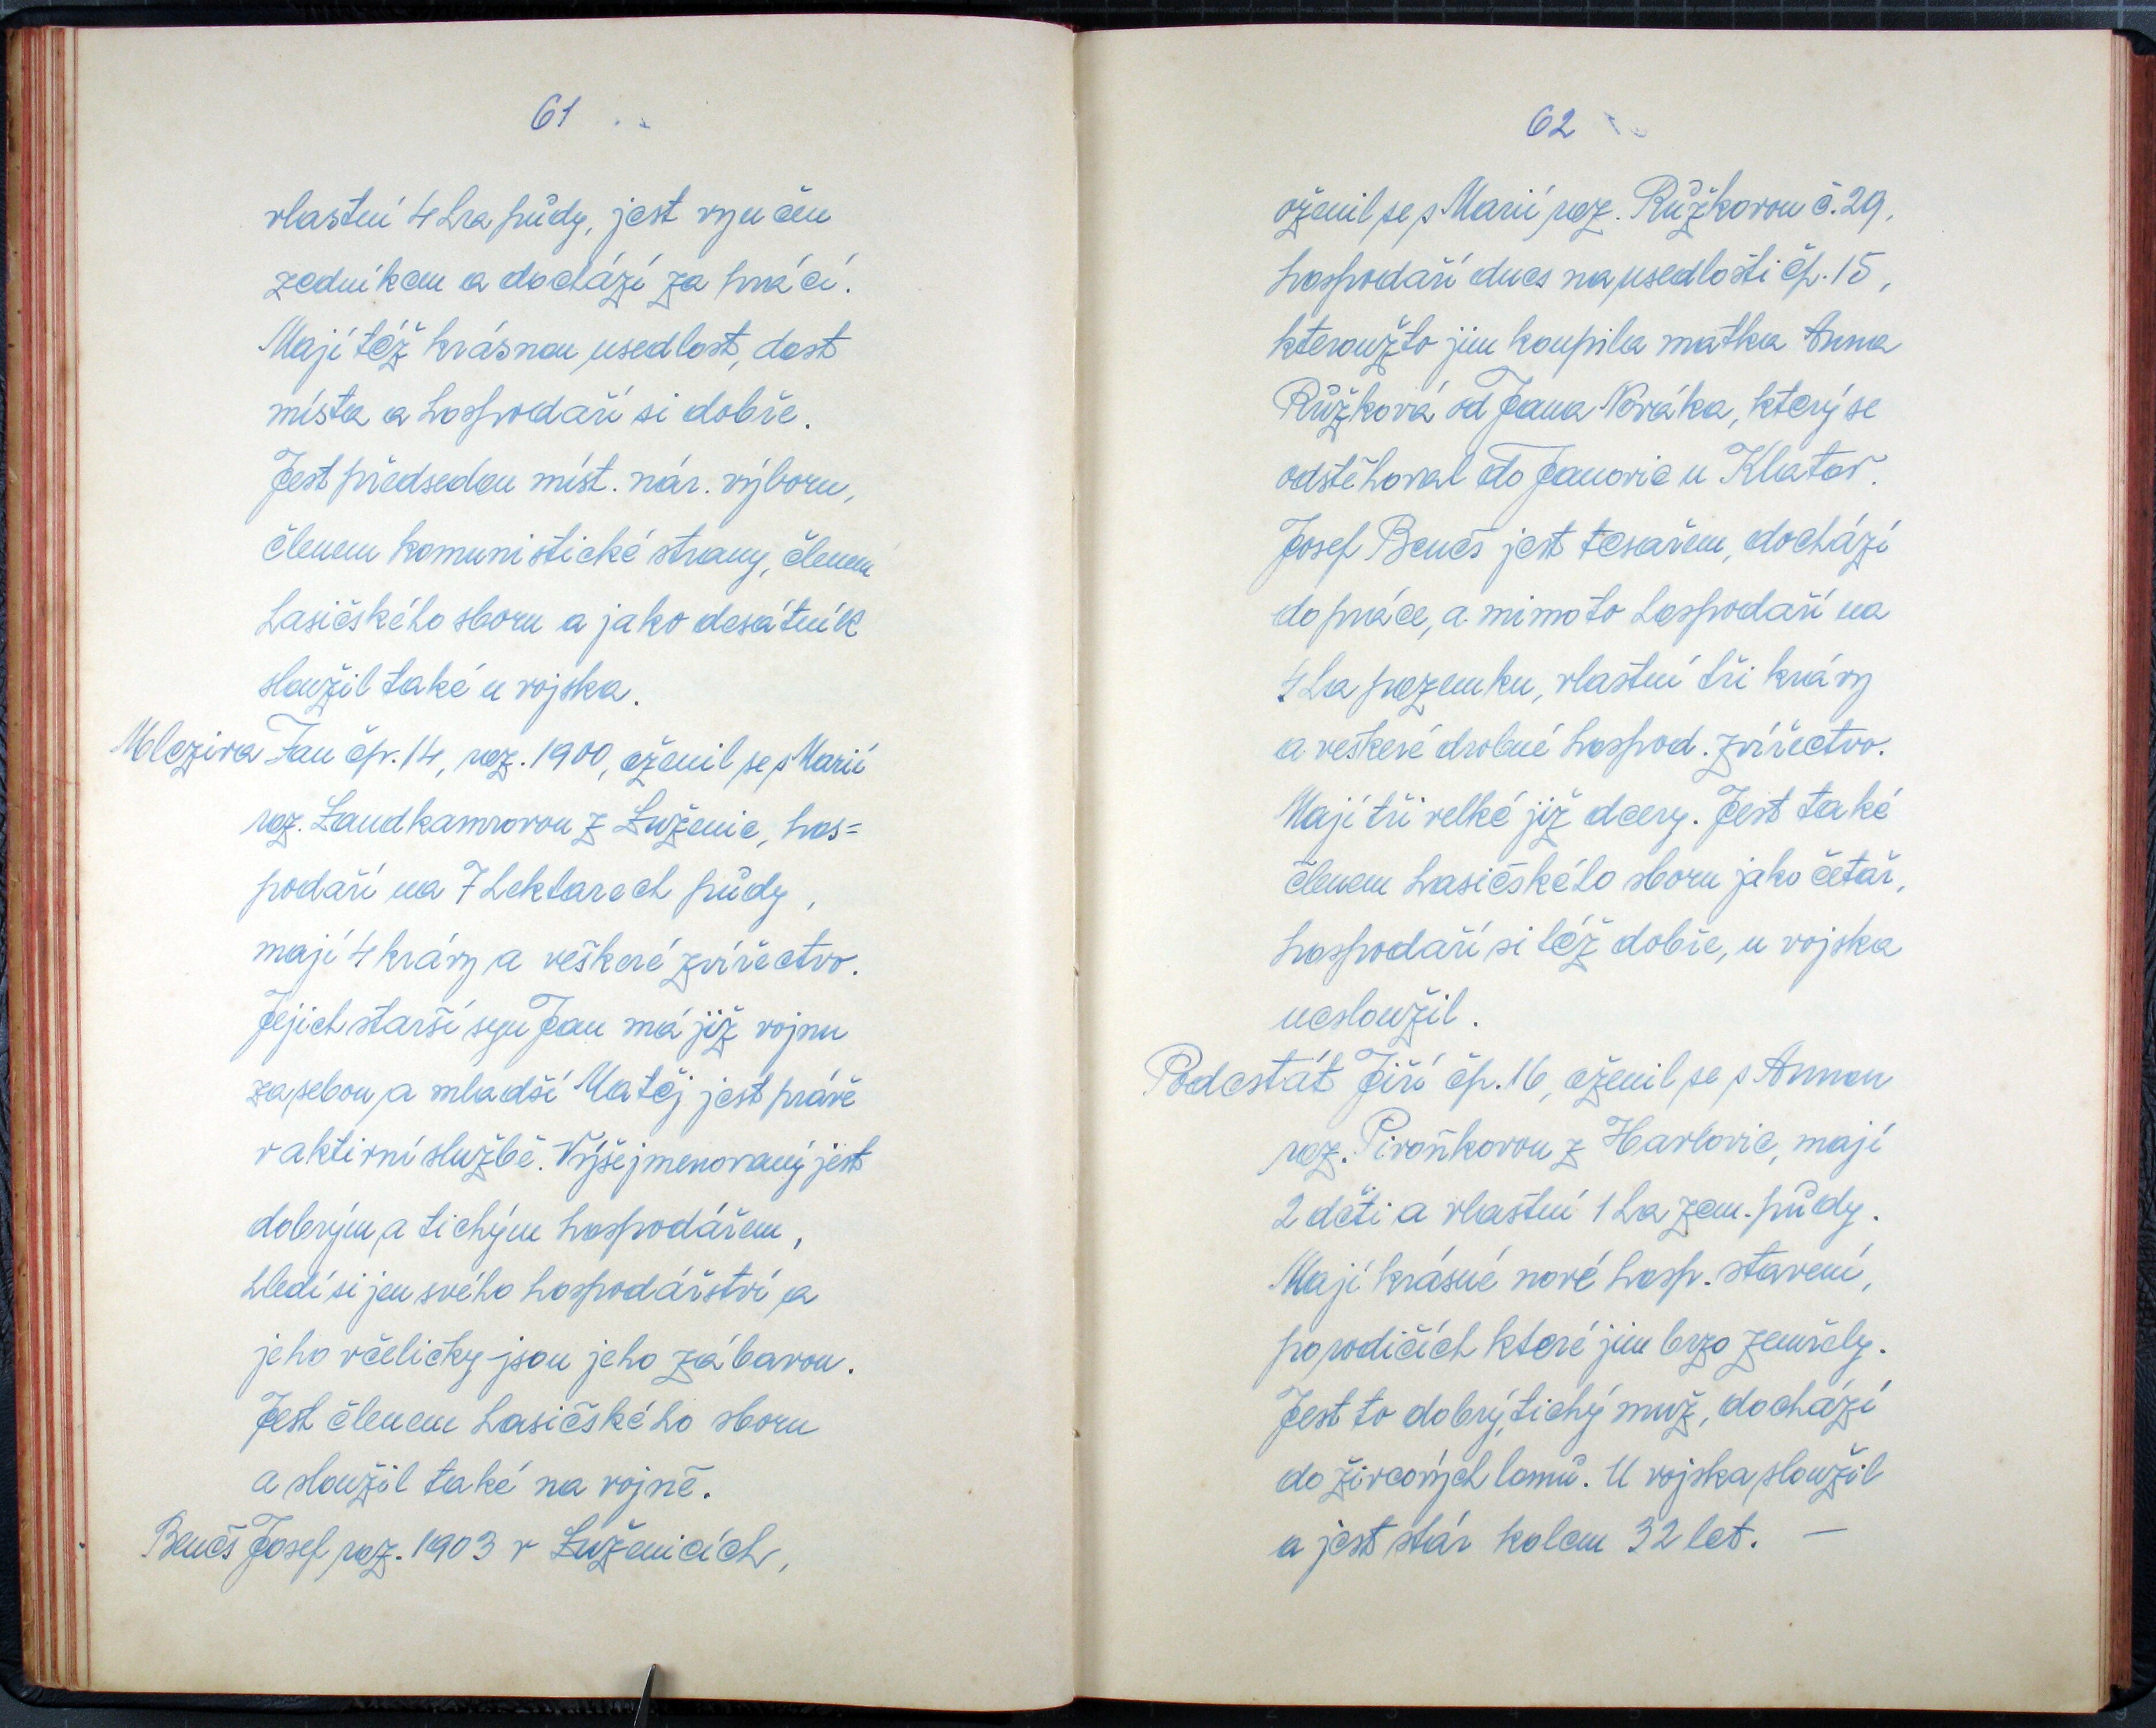 61
vlastní 4 ha půdy, jest vyučen
zedníkem a dochází za prácí.
Mají též krásnou usedlost, dost
místa a hospodaří si dobře.
Jest předsedou míst. nár. výboru,
členem komunistické strany, členem
hasičského sboru a jako desátník
sloužil také u vojska.
Mleziva Jan čp. 14, roz. 1900, oženil se s Marií
roz. Landkamrovou z Luženic, hos=
podaří na 7 hektarech půdy,
mají 4 krávy a veškeré zvířectvo.
Jejich starší syn Jan má již vojnu
za sebou a mladší Matěj jest právě
v aktivní službě. Výše jmenovaný jest
dobrým a tichým hospodářem,
hledí si jen svého hospodářství a
jeho včeličky jsou jeho zábavou.
Jest členem hasičského sboru
a sloužil také na vojně.
Beneš Josef roz. 1903 v Luženicích,
62
oženil se s Marií roz. Růžkovou č. 29,
hospodaří dnes na usedlosti čp. 15,
kteroužto jim koupila matka Anna
Růžková od Jana Nováka, který se
odstěhoval do Janovic u Klatov.
Josef Beneš jest tesařem, dochází
do práce, a mimo to hospodaří na
4 ha pozemku, vlastní tři krávy
a veškeré drobné hospod. zvířectvo.
Mají tři velké již dcery. Jest také
členem hasičského sboru jako četař,
hospodaří si též dobře, u vojska
nesloužil.
Podestát Jiří čp. 16, oženil se s Annou
roz. Piroňkovou z Havlovic, mají
2 děti a vlastní 1 ha zem. půdy.
Mají krásné nové hosp. stavení,
po rodičích které jim brzo zemřely.
Jest to dobrý, tichý muž, dochází
do živcových lomů. U vojska sloužil
a jest stár kolem 32 let. —